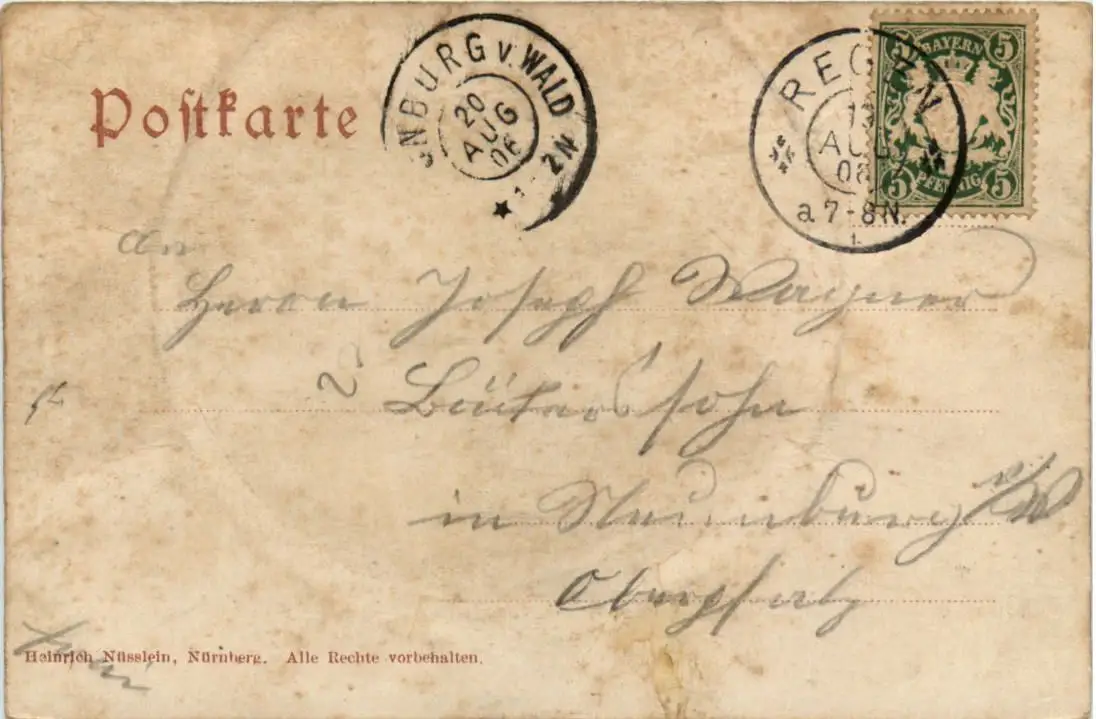 Postkarte
NBURG v. WALD
20
AUG
06
1-2N
REGEN
AUG
06
a 7-8N.
1.
5 BAYERN 5
5 PFENNIG 5
An
Herrn Joseph Wagner
sohn
in Neunburg v/W
Oberpfalz
Heinrich Nüsslein, Nürnberg. Alle Rechte vorbehalten.